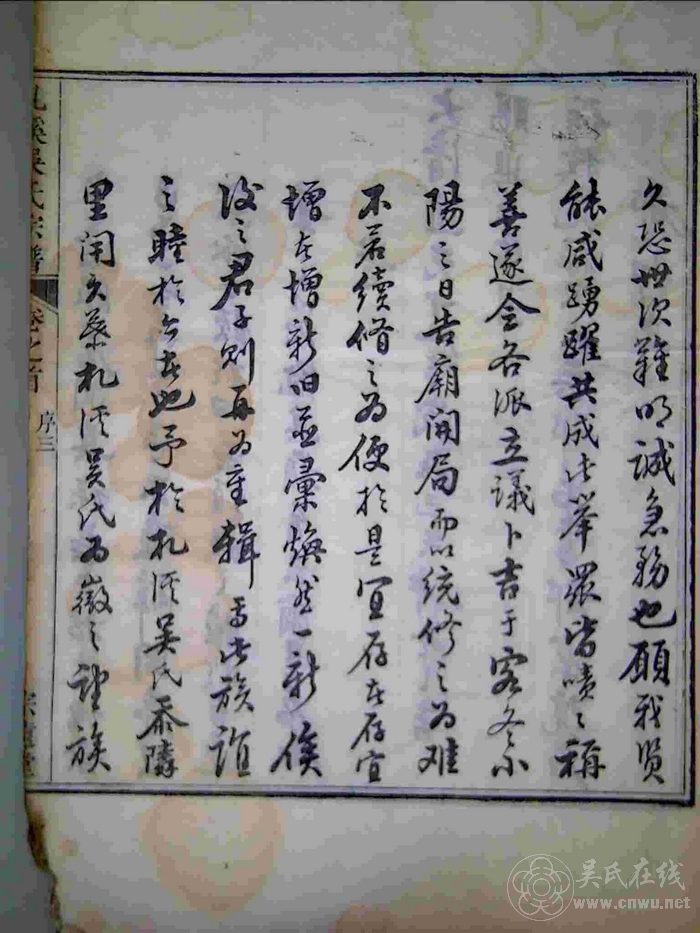 久恐世次難明誠急務也願我賢
能咸踴躍共成此舉眾皆嘖之稱
善遂會各派立議卜吉于寒冬小
陽之日告廟開局而以統修之為难
不若續脩之為便於是宜存者存宜
增者增新旧並彙煥然一新俟
後之君子則再为重輯焉此族誼
之睦於今者也予於札溪吳氏忝隣
里閈久慕札溪吳氏为徽之望族
札溪吳氏宗譜
卷之首
序三
吴氏在线
www.cnwu.net